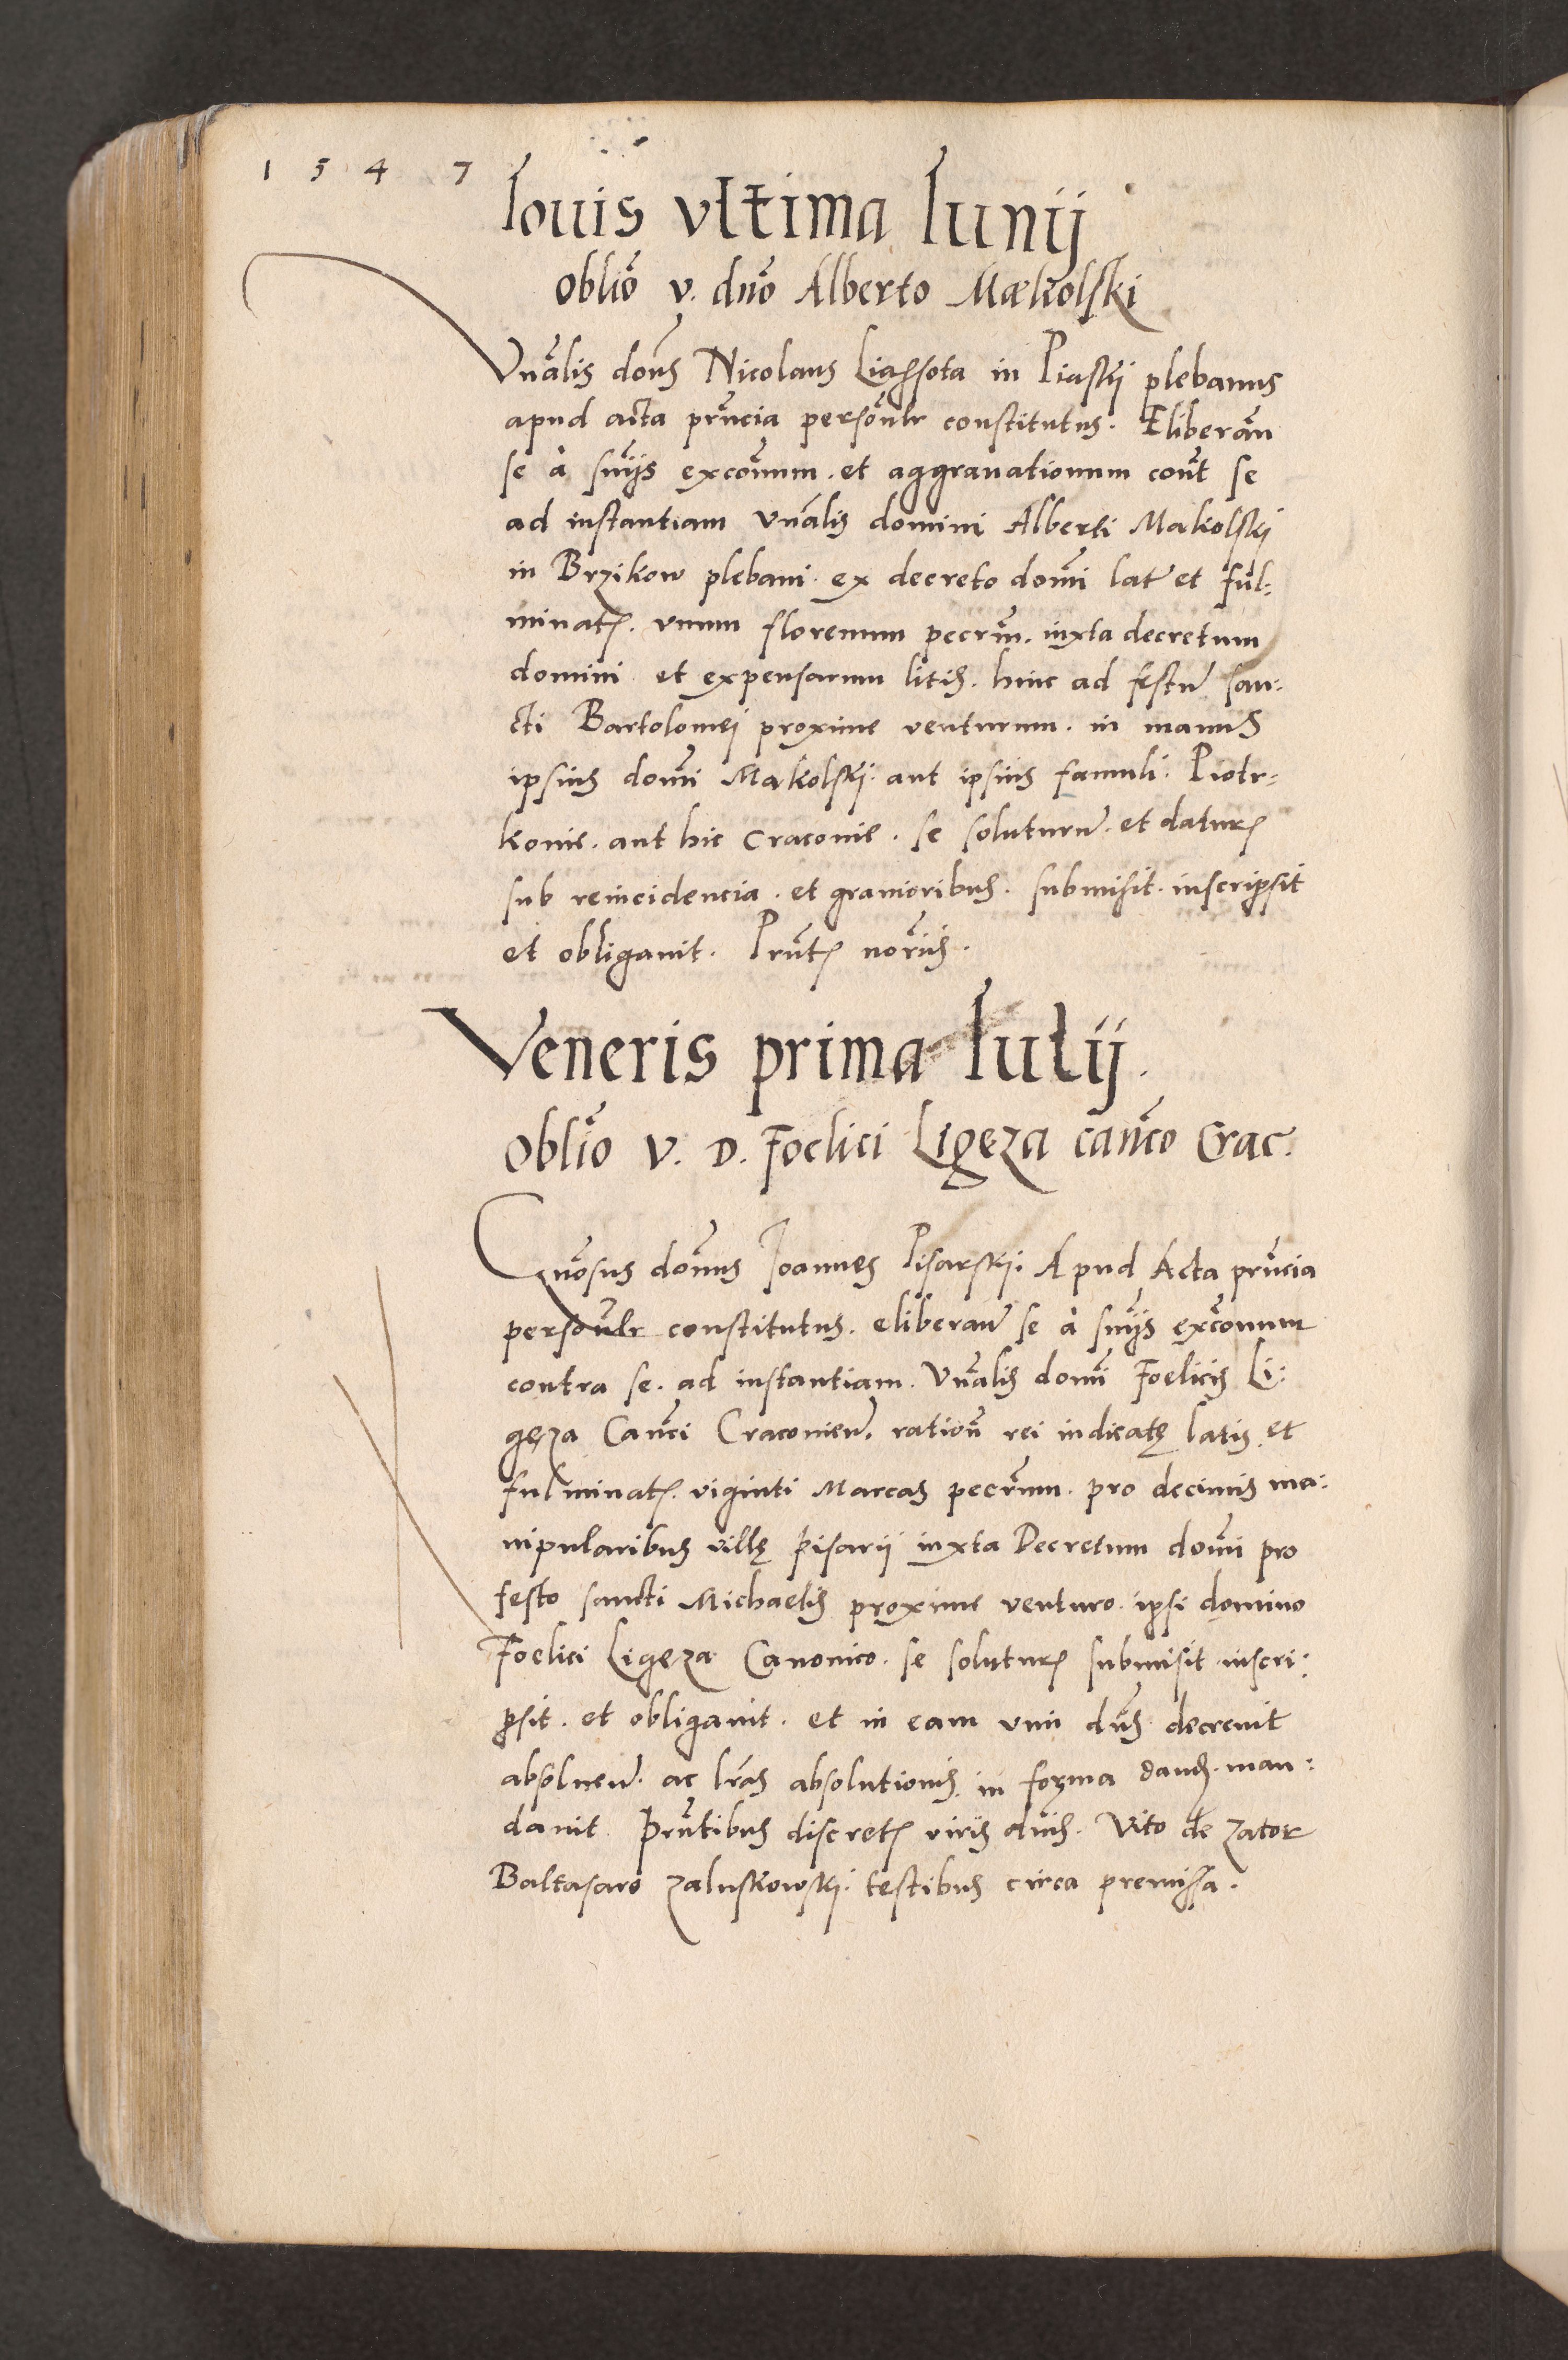 1 5 4 7
Iouis vltima Iunij
Oblió v. dnó Alberto Makolski
Vnãlis doñs Nicolaus Liassota in Piaskij plebanus
apud acta pñcia persoñlr constitutus. Eliberãn
se à sñijs excoñum. et aggrauationum coñt se
ad instantiam vnãlis domini Alberti Makolskij
in Brzikow plebani. ex decreto doñi lat et ful-
minat. vnum florenum pecrñ. iuxta decretum
domini et expensarum litis. hinc ad festu san-
cti Bartolomej proxime venturum. in manus
ipsius doñi Makolskij. aut ipsius famuli. Piotr-
konie. aut hic Craconie. se soluturu. et datur
sub reincidencia. et grauioribus. submisit. inscripsit
et obligauit. Prñt norijs.
Veneris prima Iulij.
Oblió V. D. Foelici Ligęza cañco Crac.
Gñosus doñus Ioannes Pisarskij. Apud Acta pñcia
persoñlr constitutus. eliberan se à sñijs excoñum
contra se. ad instantiam. Vnãlis doñi Foelicis Li-
gęza Cañci Craconien. rationñ rei iudicatę latis et
fulminat. viginti Marcas pecrñum. pro decimis ma-
nipularibus villę pisarij iuxta Decretum doñi pro
festo sancti Michaelis proxime venturo. ipsi domino
Foelici Ligęza Canonico. se solutur submisit inscri-
psit. et obligauit. et in eam vim dñs decreuit
absoluen. ac lrãs absolutionis in forma dand. man-
dauit. Prñtibus discret viris dñis. Vito de Zator
Baltasaro Zaluskowskj. testibus circa premissa.